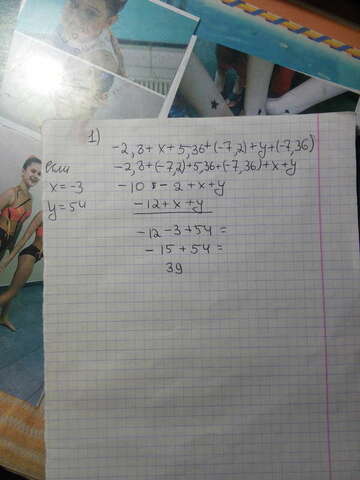 1)
-2,8+x+5,36+(-7,2)+y+(-7,36)
если -2,8+(-7,2)+5,36+(-7,36)+x+y
x=-3 -10 - 2+x+y
y=54 -12+x+y
-12-3+54=
-15+54=
39